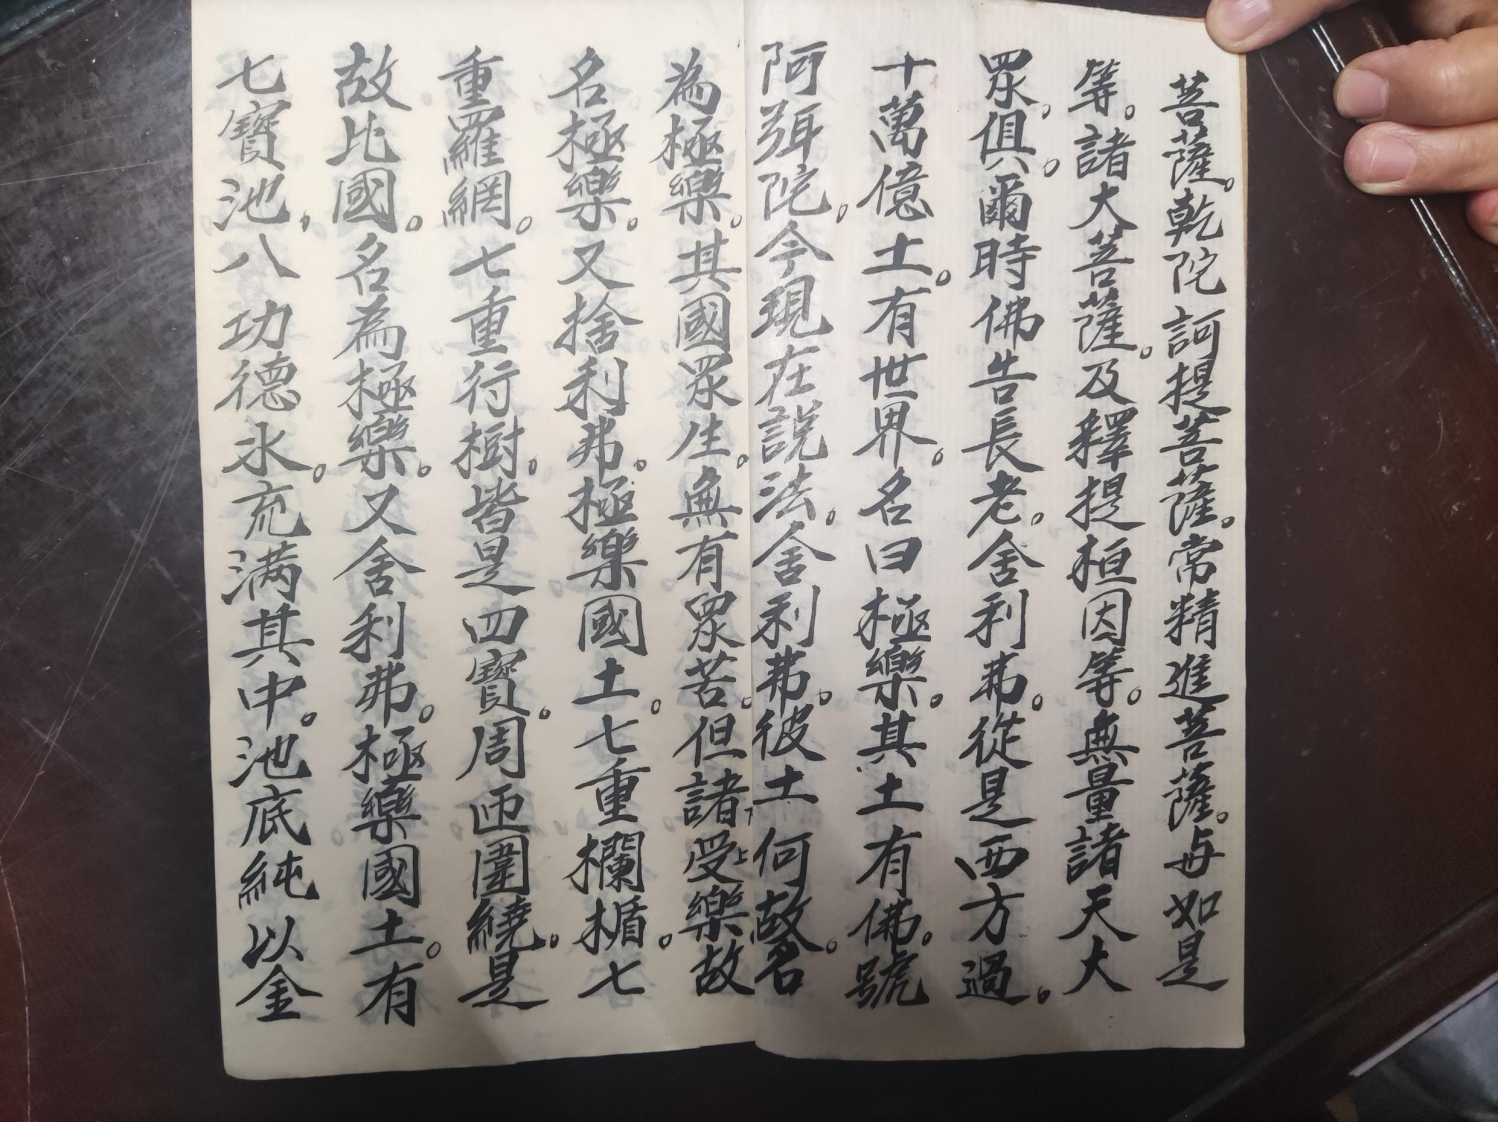 菩薩。乾陀訶提菩薩。常精進菩薩。与如是
等。諸大菩薩。及釋提桓因等。無量諸天大
眾俱。爾時佛告長老。舍利弗。從是西方過。
十萬億土。有世界。名曰極樂。其土有佛。號
阿弥陀。今現在説法。舍利弗。彼土何故名
為極樂。其國眾生。無有眾苦。但諸受樂故
名極樂。又捨利弗。極樂國土。七重欄楯。七
重羅網。七重行樹。皆是四寶。周匝圍繞。是
故比國。名為極樂。又舍利弗。極樂國土。有
七寶池。八功德水。充満其中。池底純以金